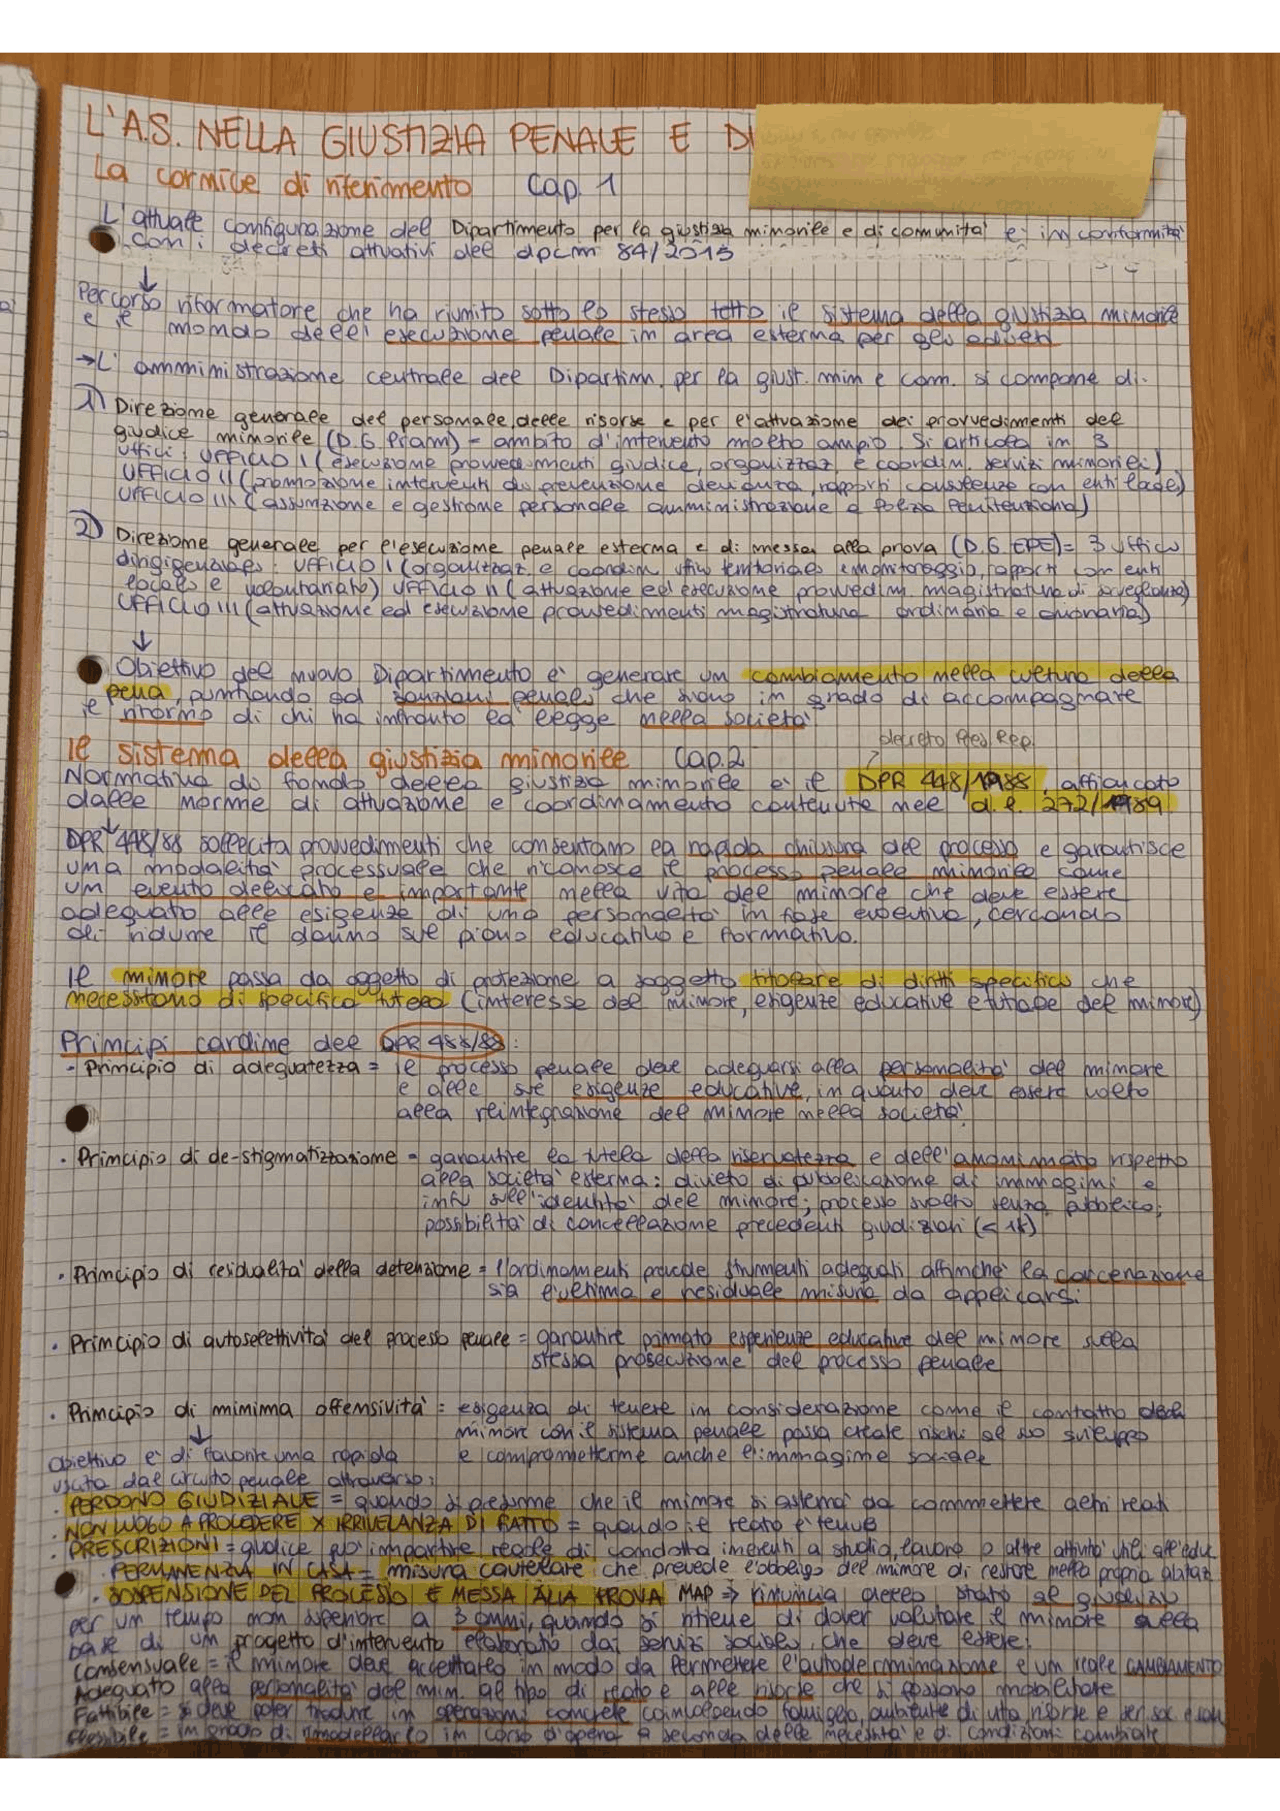 L'A.S. NELLA GIUSTIZIA PENALE E DI
La cornice di riferimento Cap. 1
L'attuale configurazione del Dipartimento per la giustizia minorile e di comunità è in conformità
con i decreti attuativi del dpcm 84/2015
↓
Percorso riformatore che ha riunito sotto lo stesso tetto il sistema della giustizia minorile
e il mondo dell'esecuzione penale in area esterna per gli adulti
→ L'amministrazione centrale del Dipartim. per la giust. min e com. si compone di:
1) Direzione generale del personale, delle risorse e per l'attuazione dei provvedimenti del
giudice minorile (D.G Pram) = ambito d'intervento molto ampio. Si articola in 3
uffici: UFFICIO I (esecuzione provvedimenti giudice, organizzaz. e coordin. servizi minorili)
UFFICIO II (promozione interventi di prevenzione devianza, rapporti consulenze con enti locali)
UFFICIO III (assunzione e gestione personale amministrazione e polizia Penitenziaria)
2) Direzione generale per l'esecuzione penale esterna e di messa alla prova (D.G EPE) = 3 uffici
dirigenziali: UFFICIO I (organizzaz e coordin. uffici territoriali e monitoraggio, rapporti con enti
locali e volontariato) UFFICIO II (attuazione ed esecuzione provvedim. magistratura di sorveglianza)
UFFICIO III (attuazione ed esecuzione provvedimenti magistratura ordinaria e onoraria)
↓
Obiettivo del nuovo Dipartimento è generare un cambiamento nella cultura della
pena, puntando ad sanzioni penali che siano in grado di accompagnare
il ritorno di chi ha infranto la legge nella società
decreto Pres. Rep.
Il sistema della giustizia minorile Cap. 2
Normativa di fondo della giustizia minorile è il DPR 448/1988, affiancato
dalle norme di attuazione e coordinamento contenute nel d.l. 272/1989
↓
DPR 448/88 sollecita provvedimenti che consentano la rapida chiusura del processo e garantisce
una modalità processuale che riconosce il processo penale minorile come
un evento delicato e importante nella vita del minore che deve essere
adeguato alle esigenze di una personalità in fase evolutiva, cercando
di ridurre il danno sul piano educativo e formativo.
Il minore passa da oggetto di protezione a soggetto titolare di diritti specifici che
necessitano di specifica tutela (interesse del minore, esigenze educative e tutela del minore)
Principi cardine del DPR 488/88:
- Principio di adeguatezza = il processo penale deve adeguarsi alla personalità del minore
e alle sue esigenze educative, in quanto deve essere volto
alla reintegrazione del minore nella società.
· Principio di de-stigmatizzazione = garantire la tutela della riservatezza e dell'anonimato rispetto
alla società esterna: divieto di pubblicazione di immagini e
info sull'identità del minore; processo svolto senza pubblico;
possibilità di cancellazione precedenti giudiziari (< 18)
· Principio di residualità della detenzione = l'ordinamenti prevede strumenti adeguati affinché la carcerazione
sia l'ultima e residuale misura da applicarsi
· Principio di autoselettività del processo penale = garantire primato esperienze educative del minore sulla
stessa prosecuzione del processo penale
· Principio di minima offensività = esigenza di tenere in considerazione come il contatto del
minore con il sistema penale possa creare rischi al suo sviluppo
e comprometterne anche l'immagine sociale
↓
Obiettivo è di favorire una rapida
uscita dal circuito penale attraverso:
· PERDONO GIUDIZIALE = quando si presume che il minore si asterrà da commettere altri reati
· NON LUOGO A PROCEDERE X IRRILEVANZA DI FATTO = quando il reato è tenue
· PRESCRIZIONI = giudice può impartire regole di condotta inerenti a studio, lavoro o altre attività utili all'educ
· PERMANENZA IN CASA = misura cautelare che prevede l'obbligo del minore di restare nella propria abitaz
· SOSPENSIONE DEL PROCESSO E MESSA ALLA PROVA MAP ⇒ rinuncia dello stato al giudizio
per un tempo non superiore a 3 anni, quando si ritiene di dover valutare il minore sulla
base di un progetto d'intervento elaborato dai servizi sociali, che deve essere:
Consensuale = il minore deve accettarlo in modo da permettere l'autodeterminazione e un reale CAMBIAMENTO
Adeguato alla personalità del min. al tipo di reato e alle risorse che si possono mobilitare
Fattibile = si deve poter tradurre in operazioni concrete coinvolgendo famiglia, ambiente di vita risorse e ser. soc.
Flessibile = in grado di rimodellarlo in corso d'opera a seconda delle necessità e di condizioni cambiate